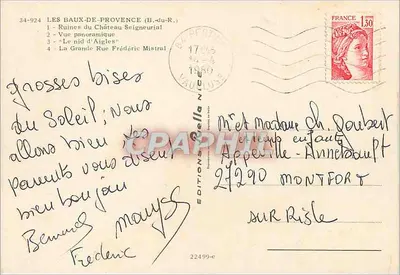 34-924 LES BAUX-DE-PROVENCE (B.-du-R.)
1 - Ruines du Château Seigneurial
2 - Vue panoramique
3 - "Le nid d'Aigles"
4 - La Grande Rue Frédéric Mistral
grosses bises
du Soleil; Nous
allons bien les
parents vous disent
bien bonjour
Bernard
Frédéric
17-
1980
VAUCLUSE
FRANCE
1,50
EDITIONS Bella VICE
CPAPHIL
Mr et Madame Ch. Joubert
enfants
Appeville-Annebault
27290 MONTFORT
SUR Risle
22499-e